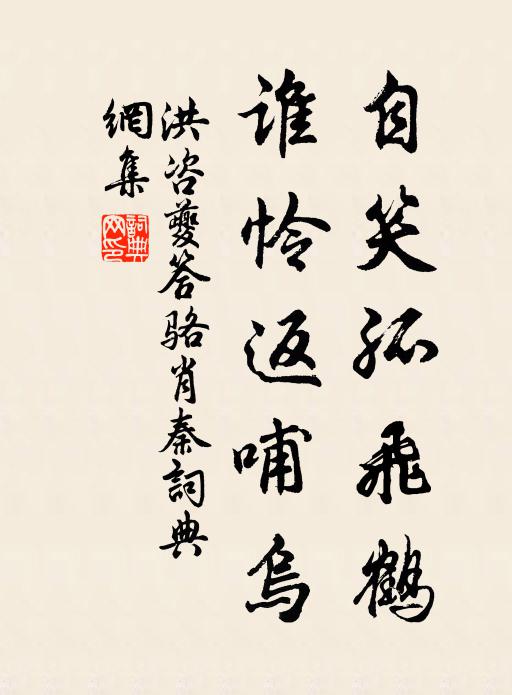 自笑孤飛鶴
誰怜返哺烏
洪咨夔答骆肖秦詞典
網集
詞典
网印